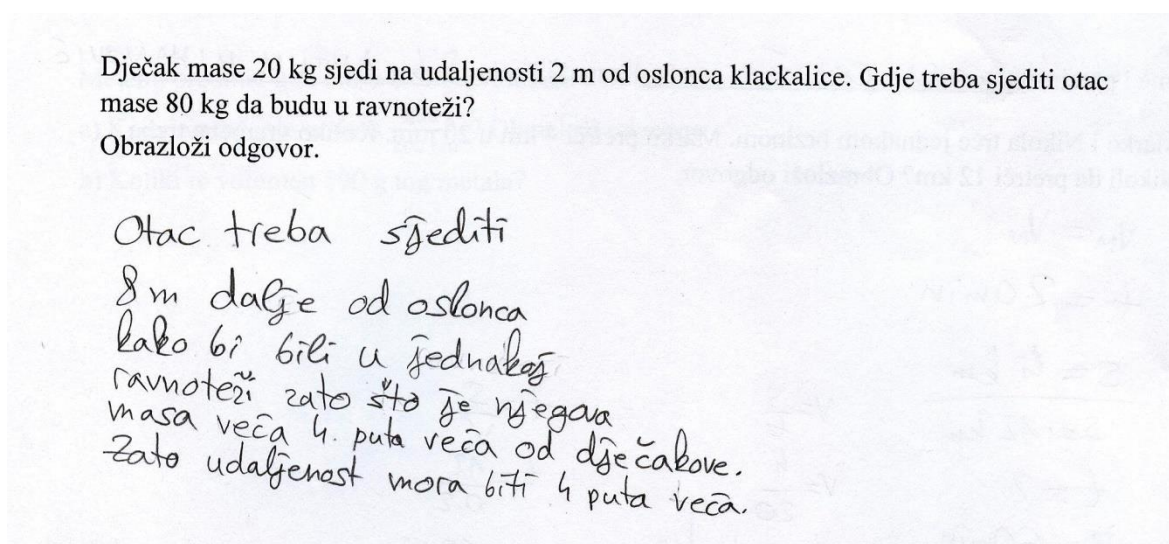 Dječak mase 20 kg sjedi na udaljenosti 2 m od oslonca klackalice. Gdje treba sjediti otac
mase 80 kg da budu u ravnoteži?
Obrazloži odgovor.
Otac treba sjediti
8 m dalje od oslonca
kako bi bili u jednakoj
ravnoteži zato što je njegova
masa veča 4. puta veča od dječakove.
Zato udaljenost mora biti 4 puta veča.